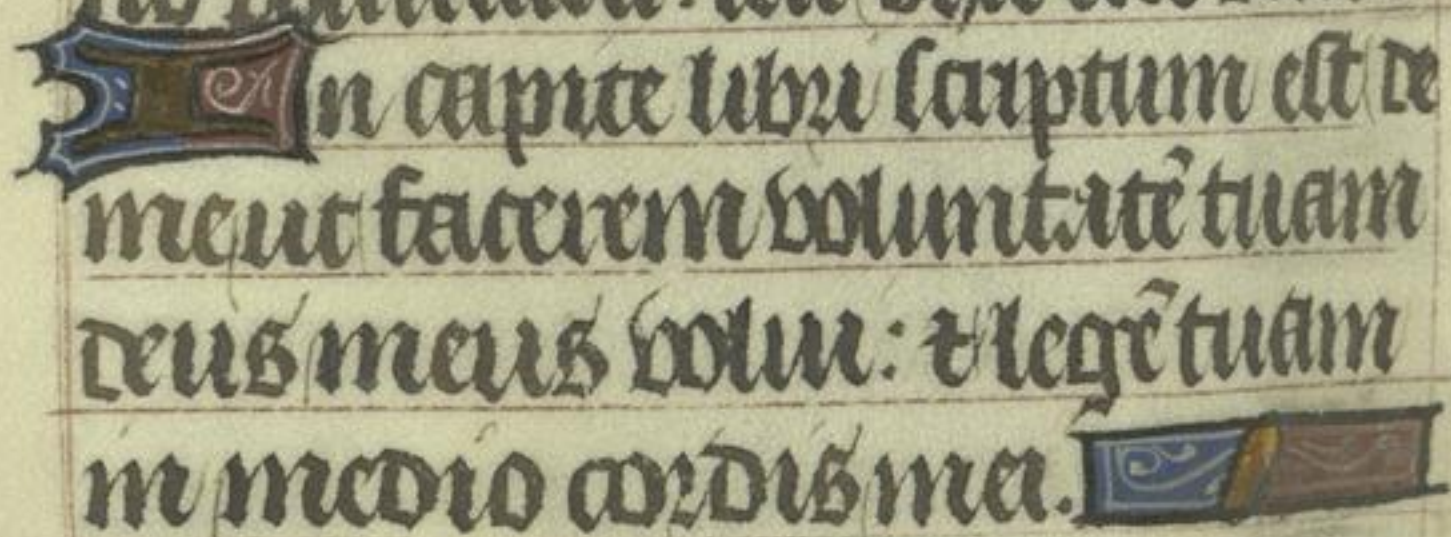 In capite libri scriptum est de
me ut facerem voluntatē tuam
deus meus volui: ⁊ legē tuam
in medio cordis mei.